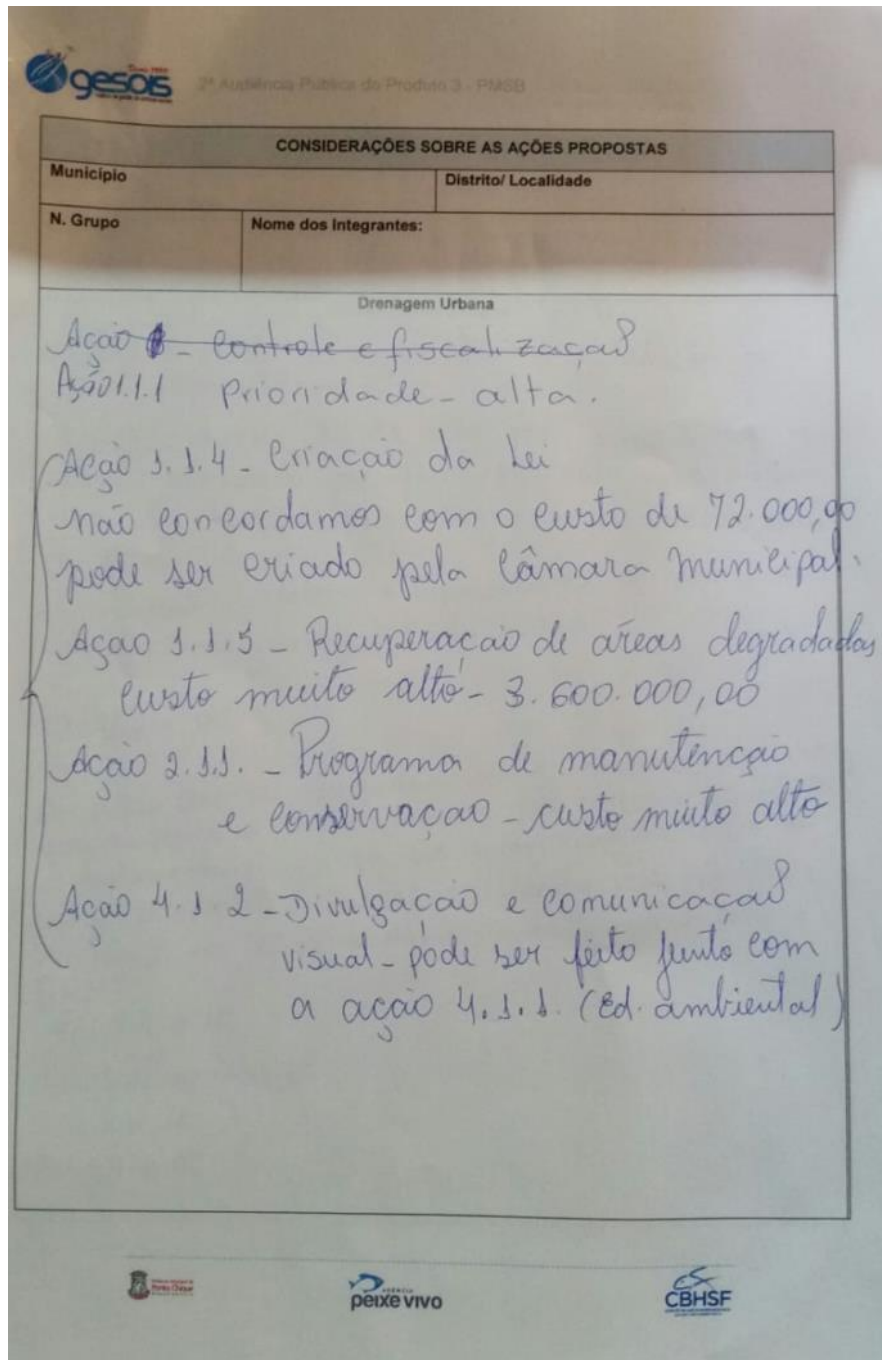 gesois
2ª Audiência Pública do Produto 3 - PMSB
CONSIDERAÇÕES SOBRE AS AÇÕES PROPOSTAS
Município
Distrito/ Localidade
N. Grupo
Nome dos Integrantes:
Drenagem Urbana
Ação - Controle e fiscalização
Ação 1.1.1 Prioridade - alta.
Ação 1.1.4 - Criação da Lei
não concordamos com o custo de 72.000,00
pode ser criado pela Câmara Municipal.
Açao 1.1.5 - Recuperação de áreas degradadas
custo muito alto - 3.600.000,00
Ação 2.1.1. - Programa de manutenção
e conservaçao - custo muito alto
Ação 4.1.2 - Divulgação e comunicação
visual - pode ser feito junto com
a ação 4.1.1. (Ed. ambiental)
Ponto Chique
AGÊNCIA
peixe vivo
CBHSF